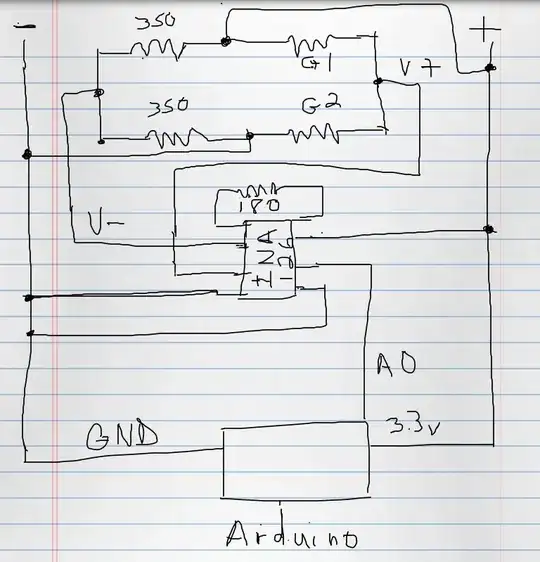 -
350
+
G1
V+
350
G2
180
V-
INA
126
A0
3.3v
GND
Arduino